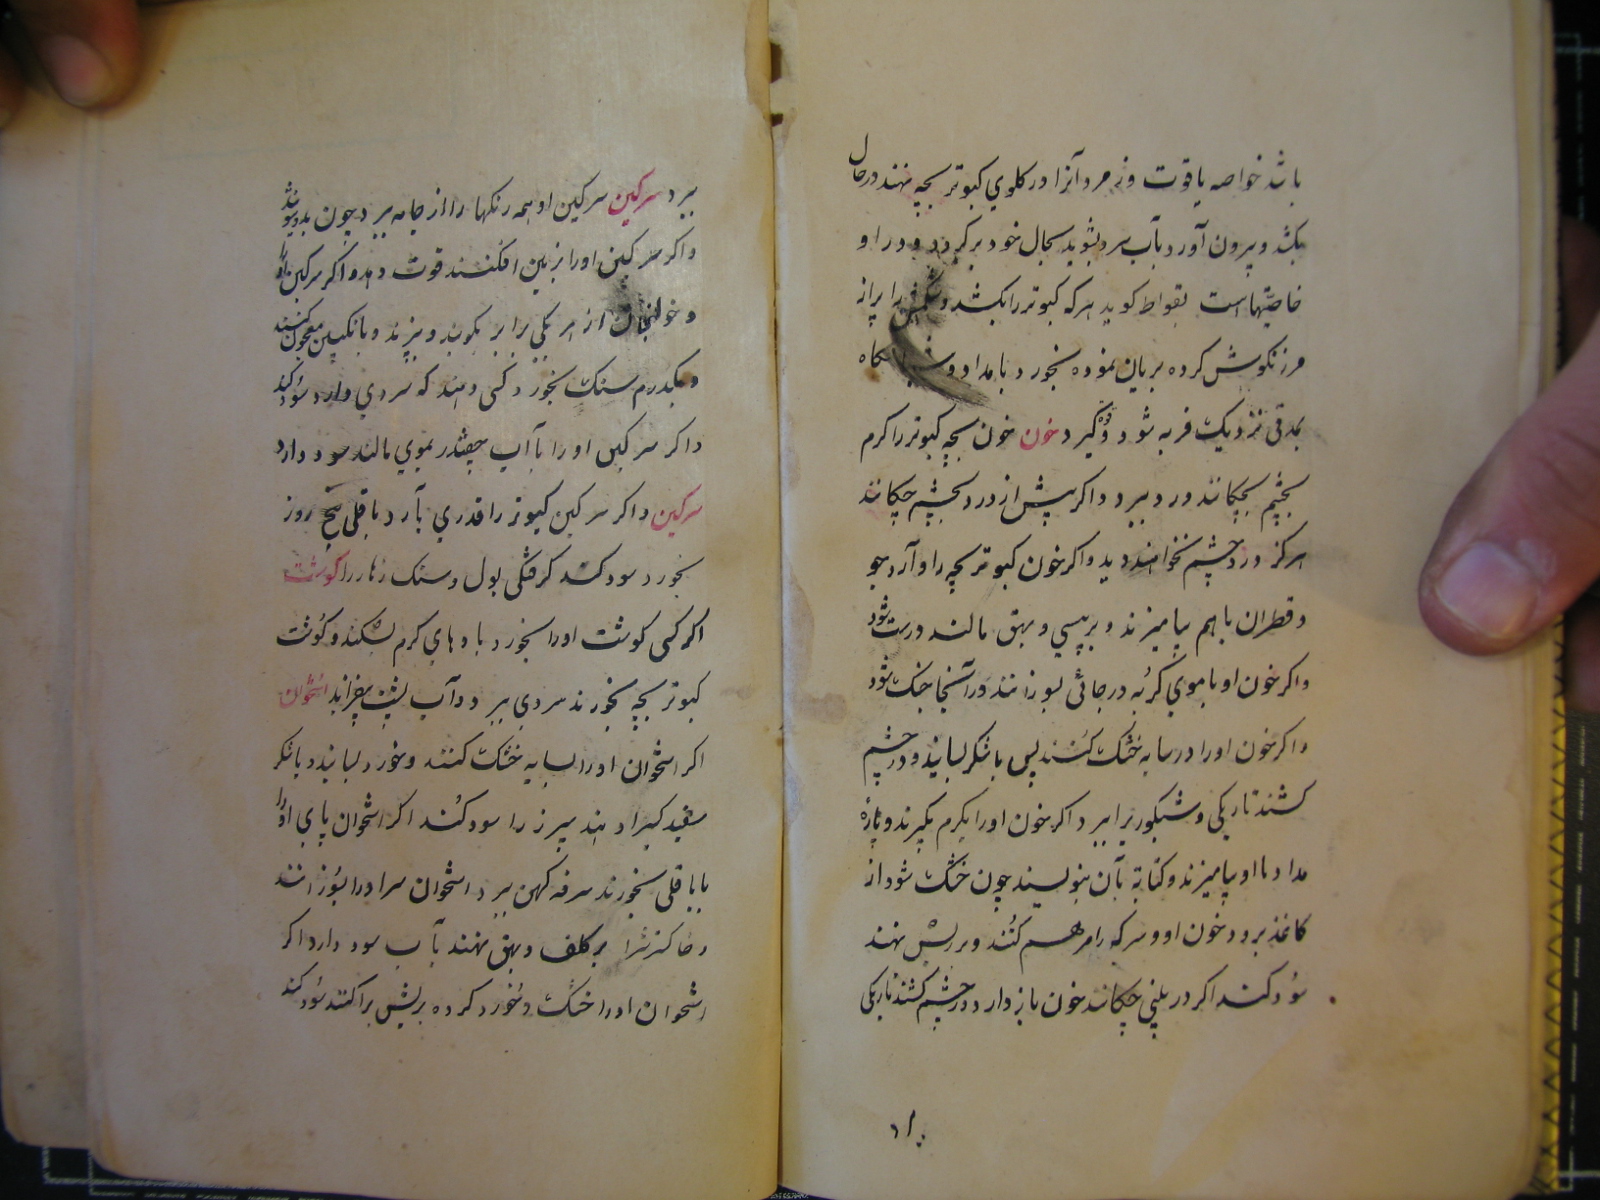 باشد خواصه یاقوت و زمرد آنرا در کلوی کبوتر بچه نهند در حال
بکشد و بیرون آورد بآب سرد بشوید بحال خود برکردد و در او
خاصیتهاست بقراط کوید هر که کبوتر را بکشد و را براز
مرزنکوش کرده بریان نموده بخورد بامداد و شبانکاه
بمدقی نزدیک فربه شود و قوة کیرد خون خون بچه کبوتر را کرم
بچشم بچکانند درد ببرد و اکر پیش از درد بچشم چکانند
هرکز درد چشم نخواهند دید و اکر خون کبوتر بچه را و آرد جو
و قطران باهم بیامیزند و بر پیسی و بهق مالند درست شود
و اکر خون او با موی کربه در جائی بسوزانند در آنجا جنک شود
و اکر خون او را در سایه خشک کنند پس با شکر بسایند و در چشم
کشند تاریکی و شبکوریرا ببرد اکر خون او را بکرم بکیرند و پارهٔ
مداد با او بیامیزند و کتابة بآن بنویسند چون خشک شود از
کاغذ برود خون او و سرکه را مرهم کنند و بر ریش نهند
سود کند اکر در بینی چکانند خون بازدارد در چشم کشند تاریکی
ببرد سرکین سرکین او همه رنکها را از جامه ببرد چون بدو بشویند
و اکر سرکین او را بزمین افکنند قوت دهد و اکر سرکین او
و خولنجان از هر یکی برابر بکوبند و ببزند و بانکبین معجون کنند
و یکدرم سنک بخورد کسی دهند که سردی دارد سود کند
و اکر سرکین او را با آب چقندر بموی مالند سود دارد
سرکین و اکر سرکین کبوتر را قدری بآرد باقلی پنج روز
بخورد سود کند کرفتکی بول و سنک زهار را کوشت
اکر کسی کوشت او را بخورد بادهای کرم بشکند و کوشت
کبوتر بچه بخورند سردی ببرد و آب پشت بیفزاید استخوان
اکر استخوان او را بسایه خشک کنند و خورد بسایند و با شکر
سفید کیرا دهند سپرز را سود کند اکر استخوان پای او را
با باقلی بخورند سرفه کهن ببرد استخوان سر او را بسوزانند
و خاکسترش را بر کلف و بهق نهند بآب سود دارد اکر
استخوان او را خشک و خورد کرده بریش پراکنند سود کند